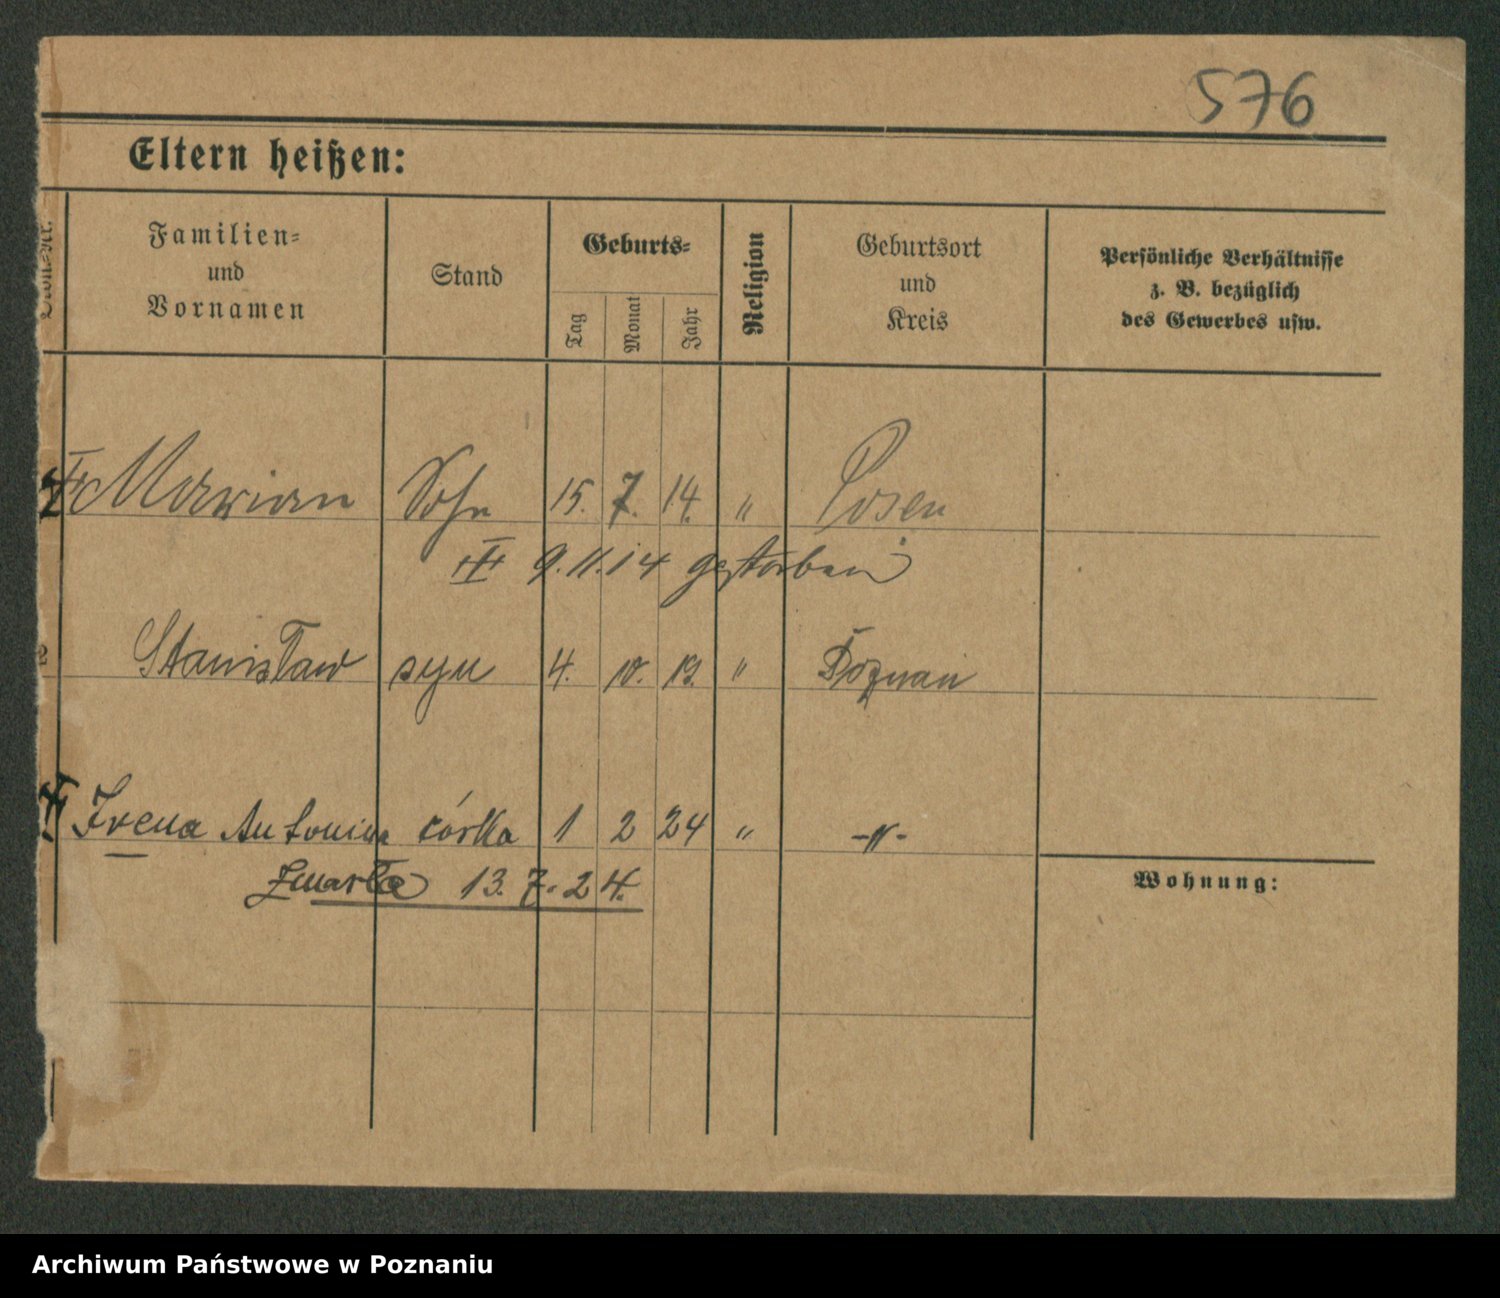 576
Eltern heißen:
Familien=
und
Vornamen
Stand
Geburts=
Tag
Monat
Jahr
Religion
Geburtsort
und
Kreis
Persönliche Verhältnisse
z. B. bezüglich
des Gewerbes usw.
Marian Sohn 15. 7. 14. " Posen
9.11.14 gestorben
2 Stanisław syn 4. 10. 19. " Poznań
Irena Antonina córka 1 2 24 " -"-
Zmarła 13. 7. 24.
Wohnung:
Archiwum Państwowe w Poznaniu